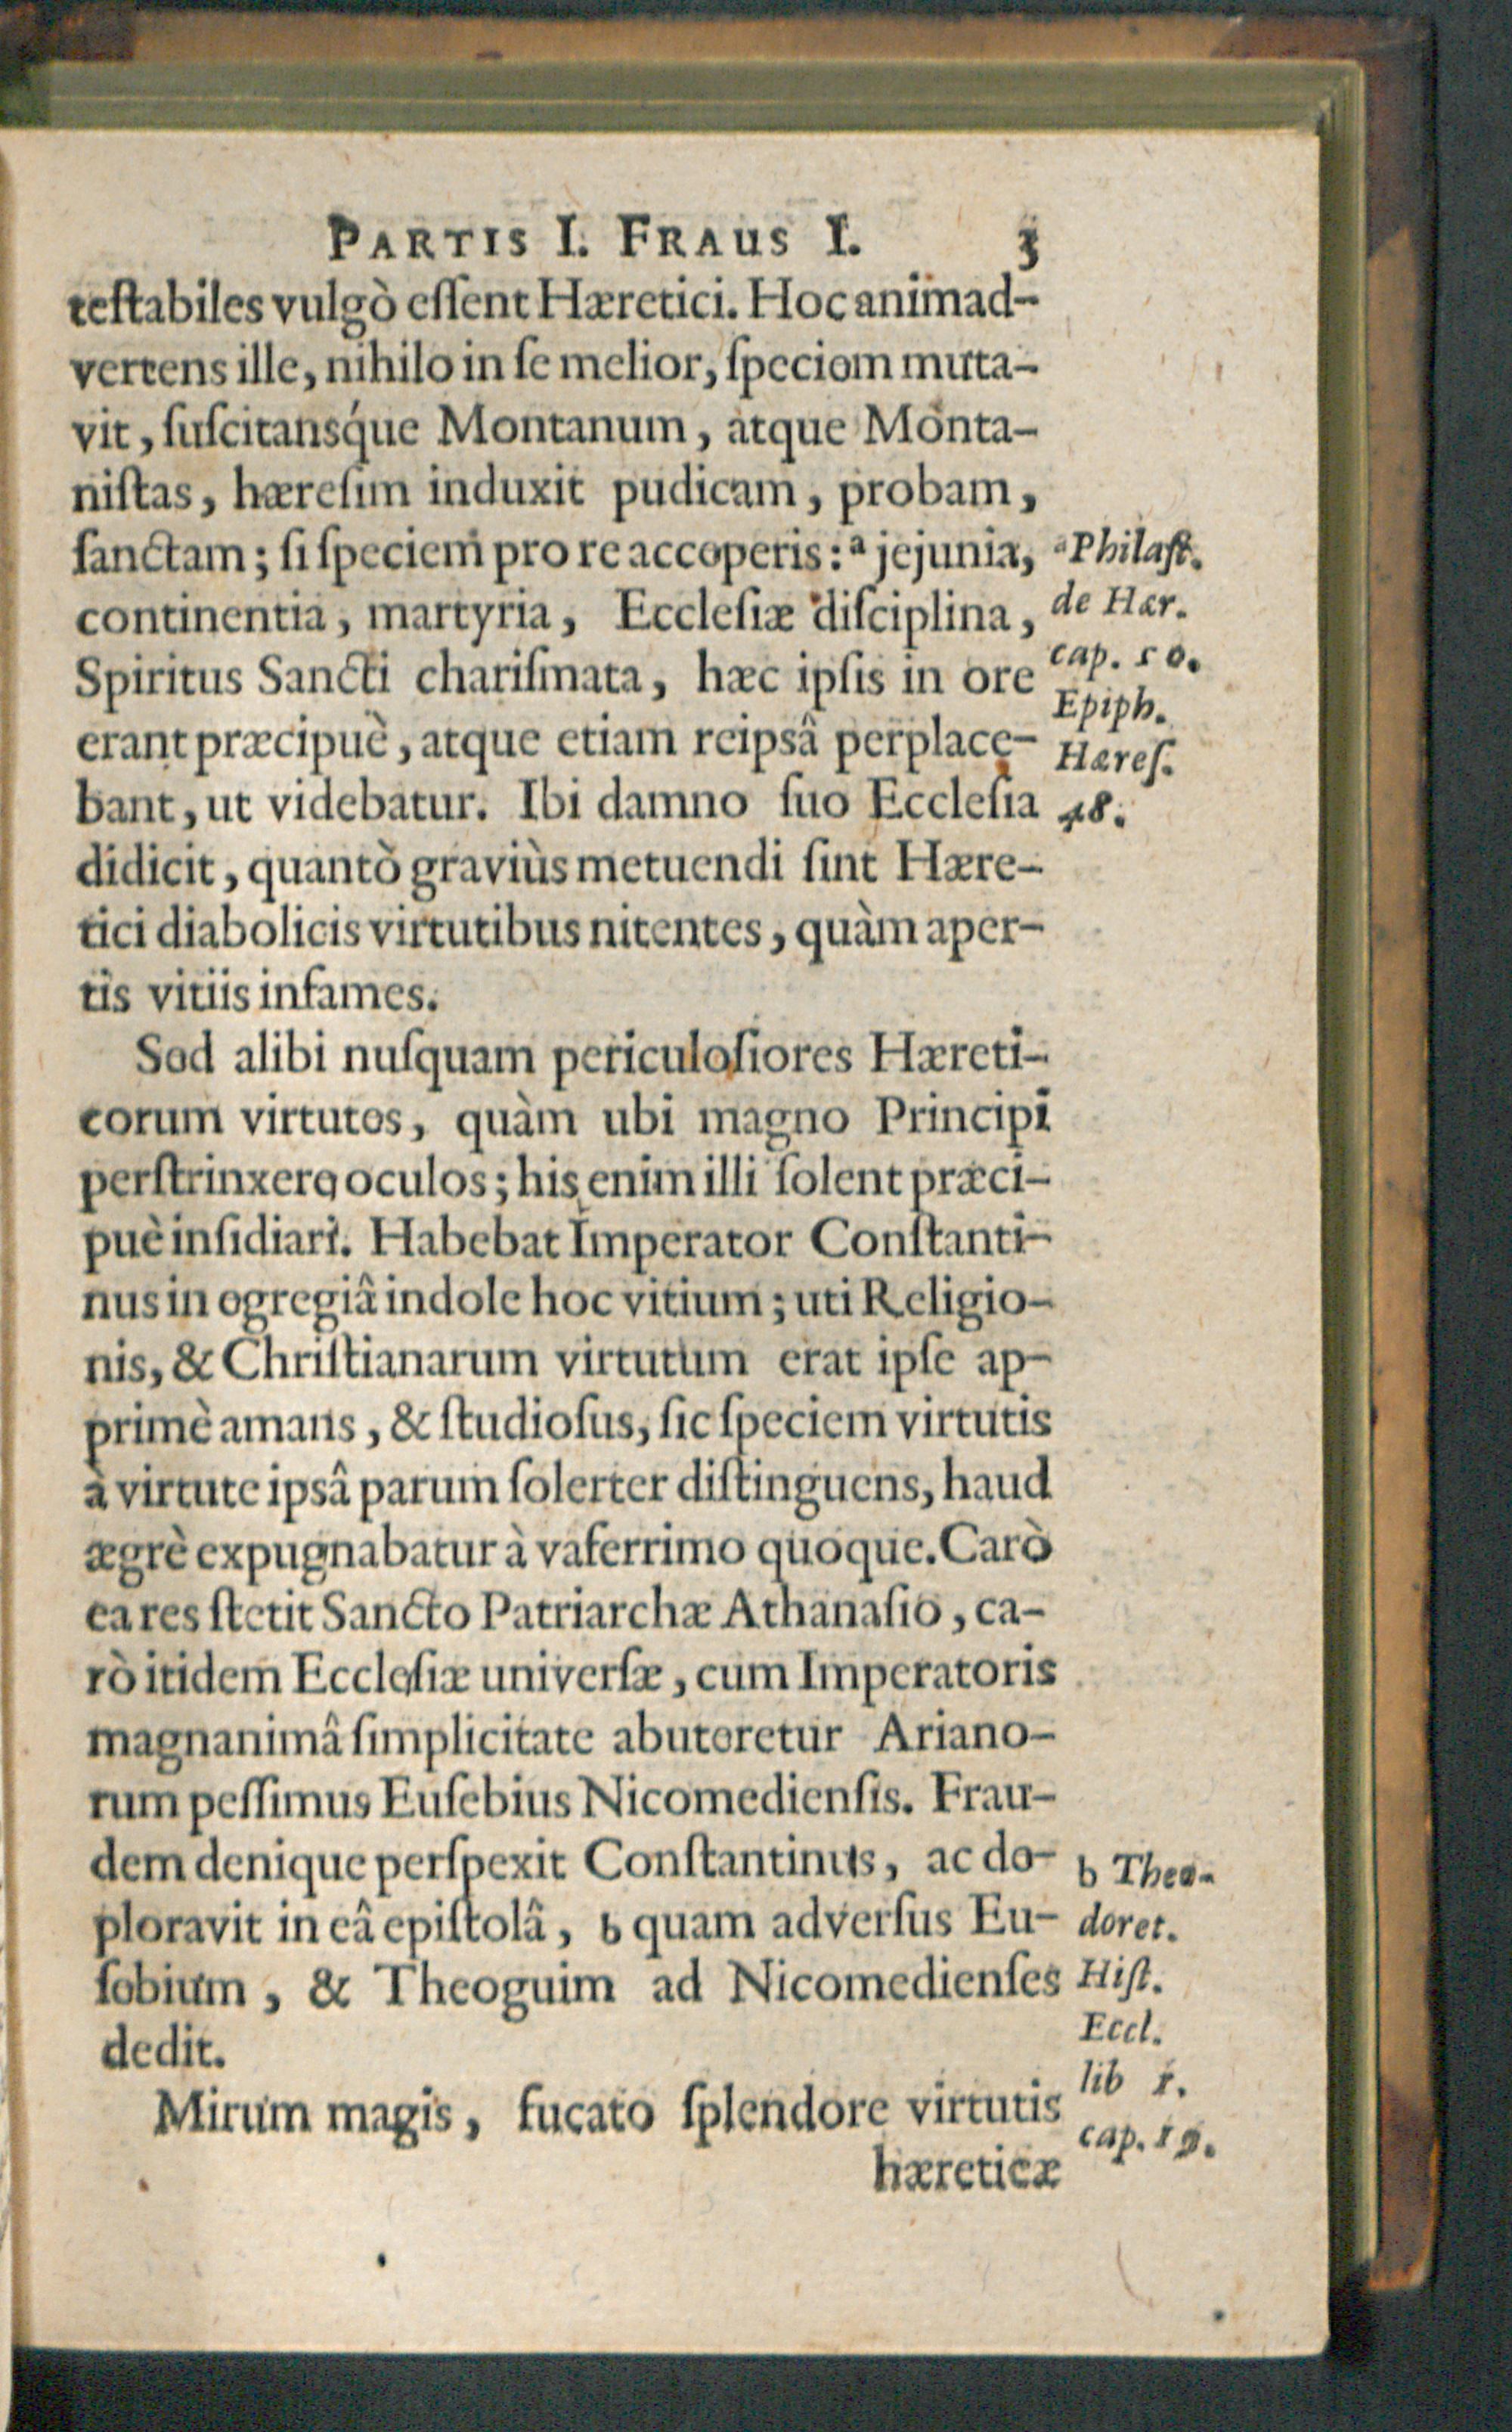 PARTIS I. FRAUS I. 3
teſtabiles vulgò eſſent Hæretici. Hoc animad-
vertens ille, nihilo in ſe melior, ſpeciem muta-
vit, ſuſcitansq́ue Montanum, atque Monta-
niſtas, hæreſim induxit pudicam, probam,
ſanctam; ſi ſpeciem pro re acceperis: ª jejunia,
continentia, martyria, Eccleſiæ diſciplina,
Spiritus Sancti chariſmata, hæc ipſis in ore
erant præcipuè, atque etiam reipsâ perplace-
bant, ut videbatur. Ibi damno ſuo Eccleſia
didicit, quantò graviùs metuendi ſint Hære-
tici diabolicis virtutibus nitentes, quàm aper-
tis vitiis infames.
Sed alibi nuſquam periculoſiores Hæreti-
corum virtutes, quàm ubi magno Principi
perſtrinxere oculos; his enim illi ſolent præci-
puè inſidiari. Habebat Imperator Conſtanti-
nus in egregiâ indole hoc vitium; uti Religio-
nis, & Chriſtianarum virtutum erat ipſe ap-
primè amans, & ſtudioſus, ſic ſpeciem virtutis
à virtute ipsâ parum ſolerter diſtinguens, haud
ægrè expugnabatur à vaferrimo quoque. Carò
ea res ſtetit Sancto Patriarchæ Athanaſio, ca-
rò itidem Eccleſiæ univerſæ, cum Imperatoris
magnanimâ ſimplicitate abuteretur Ariano-
rum peſſimus Euſebius Nicomedienſis. Frau-
dem denique perſpexit Conſtantinus, ac de-
ploravit in eâ epiſtolâ, b quam adverſus Eu-
ſebium, & Theoguim ad Nicomedienſes
dedit.
Mirum magis, fucato ſplendore virtutis
hæreticæ
ª Philaſt.
de Hær.
cap. 50.
Epiph.
Hæreſ.
48.
b Theo-
doret.
Hiſt.
Eccl.
lib 1.
cap. 19.